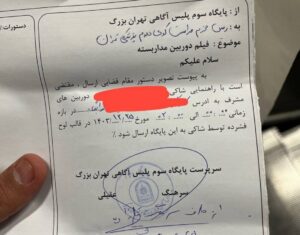 دستورات
از : پایگاه سوم پلیس آگاهی تهران بزرگ
به :
موضوع : فیلم دوربین مداربسته
سلام علیکم
به پیوست تصویر دستور مقام قضایی ارسال ، مقتضی
است با راهنمایی شاکی دوربین های
مشرف به آدرس در بازه
زمانی الی مورخ ۱۴۰۳/۱۲/۲۵ در قالب لوح
فشرده توسط شاکی به این پایگاه ارسال شود./
سرپرست پایگاه سوم پلیس آگاهی تهران بزرگ
سرهنگ